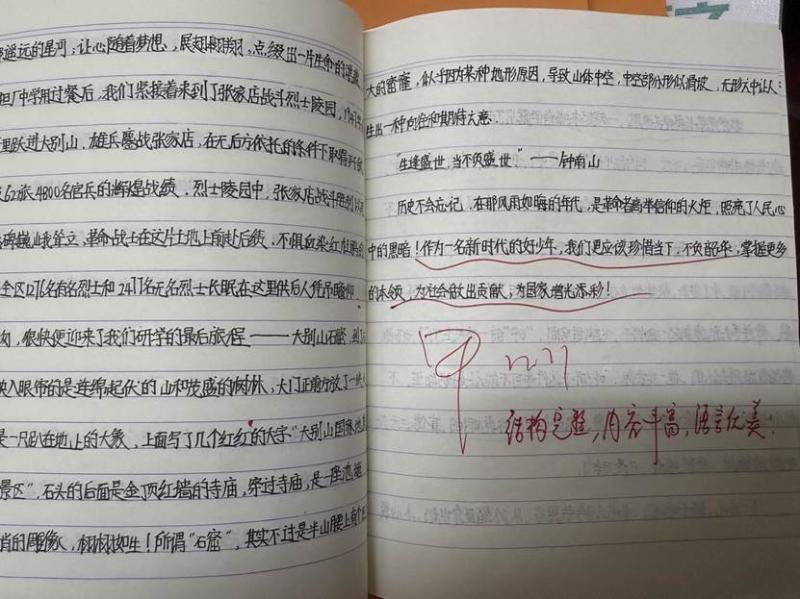 遥远的星河；让心随着梦想，展翅翱翔，点缀出一片生命的
中学用过餐后，我们紧接着来到了张家店战斗烈士陵园，
里跃进大别山，雄兵鏖战张家店，在无后方依托的条件下取得
62旅4800名官兵的辉煌战绩。烈士陵园中，张家店战斗胜利
碑巍巍耸立，革命战士在这片土地上前赴后续，不惧血染红
全区有名烈士和名无名烈士长眠在这里供后人凭吊瞻仰。
很快便迎来了我们研学的最后旅程——大别山石窟，
映入眼帘的是连绵起伏的山和茂盛的树林，大门正前方放了一
是一只趴在地上的大象，上面写了几个红红的大字“大别山国
景区”。石头的后面是金顶红墙的寺庙，穿过寺庙，是一座
肖的雕像，栩栩如生！所谓“石窟”，其实不过是半山腰上
大的窑窟，似乎因为某种地形原因，导致山体中空，中空部分形似滑坡，无形六中让人
生出一种向往和期待之意。
“生逢盛世，当不负盛世”——钟南山
历史不会忘记，在那风雨如晦的年代，是革命者高举信仰的火炬，照亮了人民心
中的黑暗！作为一名新时代的好少年，我们更应该珍惜当下，不负韶华，掌握更多
的本领，为社会做出贡献，为国家增光添彩！
结构完整，内容丰富，语言优美！